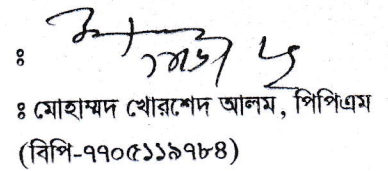 :
: মোহাম্মদ খোরশেদ আলম, পিপিএম
(বিপি-৭৭০৫১১৯৭৮৪)